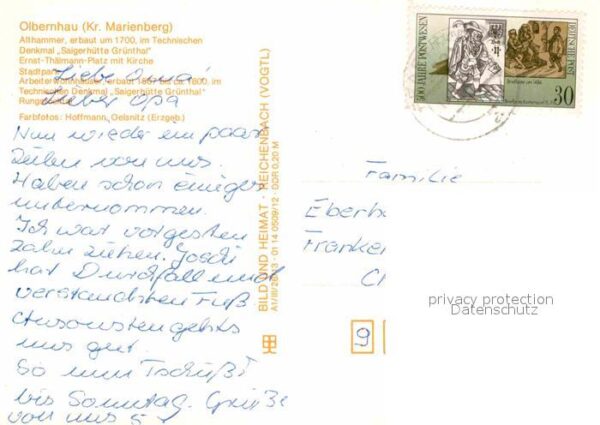 Olbernhau (Kr. Marienberg)
Althammer, erbaut um 1700, im Technischen
Denkmal „Saigerhütte Grünthal"
Ernst-Thälmann-Platz mit Kirche
Stadtpark
Arbeiterwohnhäuser, erbaut um 1800, im
Technischen Denkmal „Saigerhütte Grünthal"
Rungs
Farbfotos: Hoffmann, Oelsnitz (Erzgeb.)
Liebe Oma!
Lieber Opa
Nun wieder ein paar
Zeilen von uns.
Haben schon einiges
unternommen.
Ich war vorgestern
Zahn ziehen.
hat Durchfall und
verstauchten Fuß
Ansonsten gehts
uns gut.
So nun Tschüß!
bis Sonntag. Grüße
von uns 5
BILD UND HEIMAT · REICHENBACH (VOGTL)
01 14 0509/12 · DDR 0,20 M
500 JAHRE POSTWESEN
DEUTSCHE POST
30
Familie
Eberh
Franken
privacy protection
Datenschutz
9